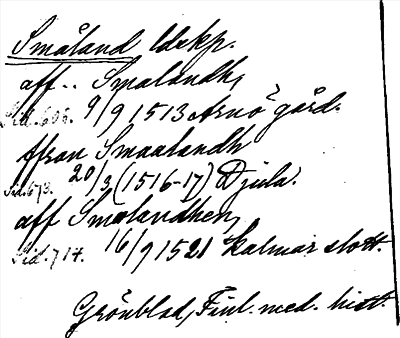 Småland ldskp.
aff .. Smalandh,
Sid. 606. 9/9 1513 Arnö gård.
ffran Smaalandh
Sid. 673. 20/3 (1516-17) Djula.
aff Smalandhen,
Sid. 714. 16/9 1521 Kalmar slott.
Grönblad, Finl. med. hist.